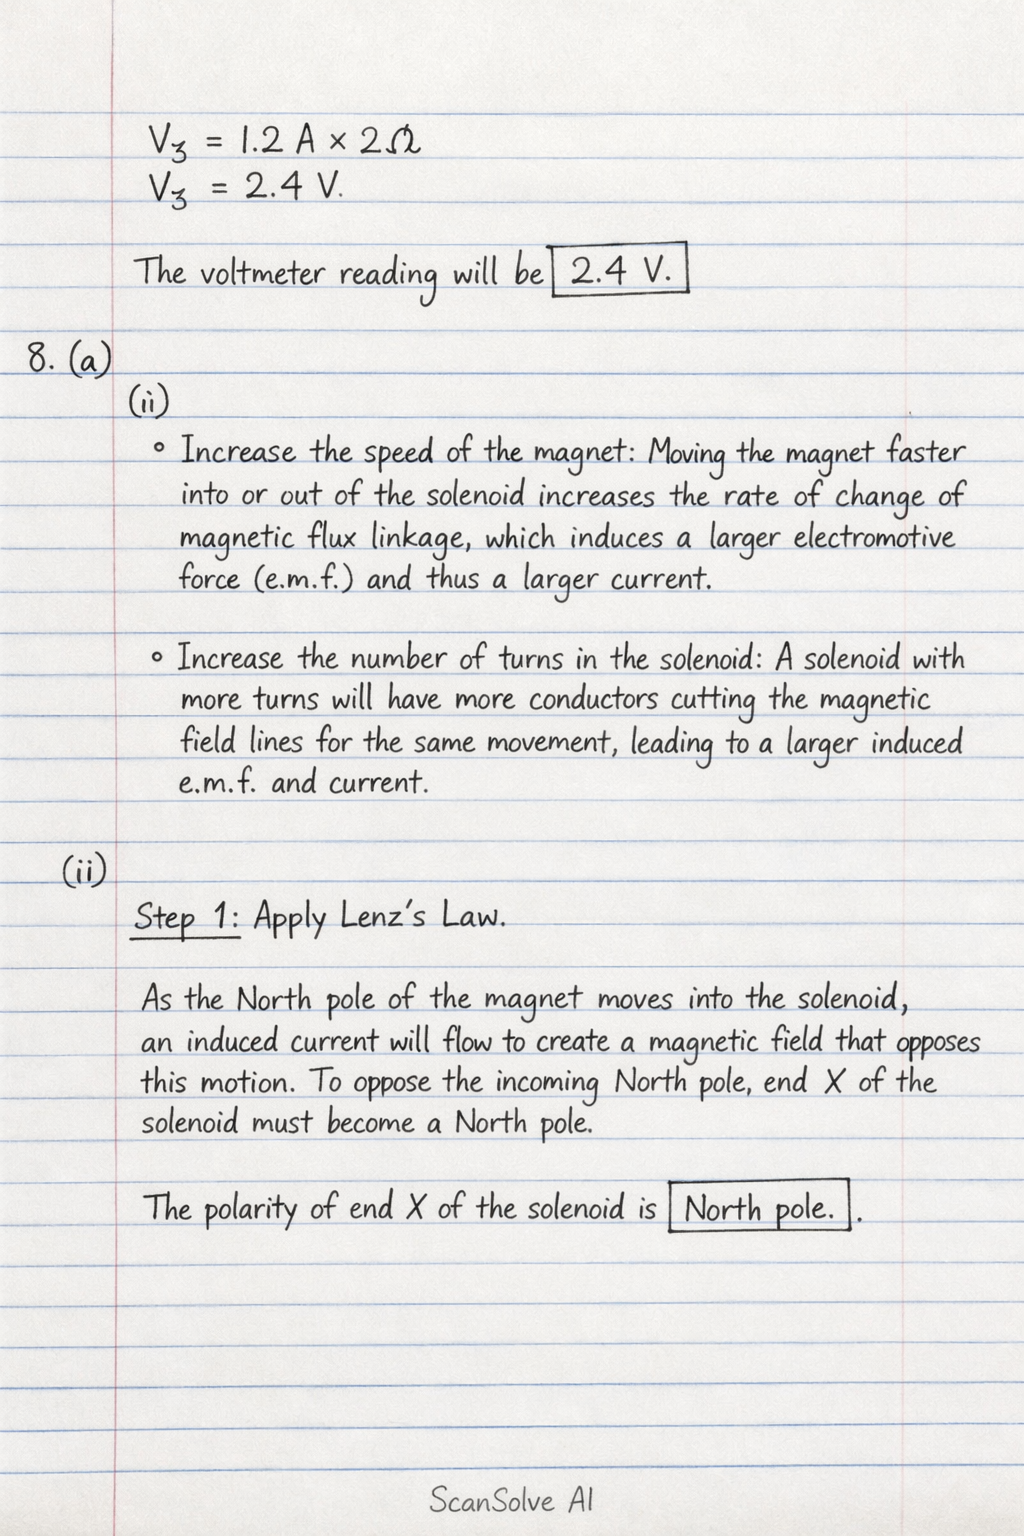 V₃ = 1.2 A × 2Ω
V₃ = 2.4 V.
The voltmeter reading will be 2.4 V.
8. (a)
(ii)
∘ Increase the speed of the magnet: Moving the magnet faster
into or out of the solenoid increases the rate of change of
magnetic flux linkage, which induces a larger electromotive
force (e.m.f.) and thus a larger current.
∘ Increase the number of turns in the solenoid: A solenoid with
more turns will have more conductors cutting the magnetic
field lines for the same movement, leading to a larger induced
e.m.f. and current.
(ii)
Step 1: Apply Lenz's Law.
As the North pole of the magnet moves into the solenoid,
an induced current will flow to create a magnetic field that opposes
this motion. To oppose the incoming North pole, end X of the
solenoid must become a North pole.
The polarity of end X of the solenoid is North pole. .
ScanSolve AI